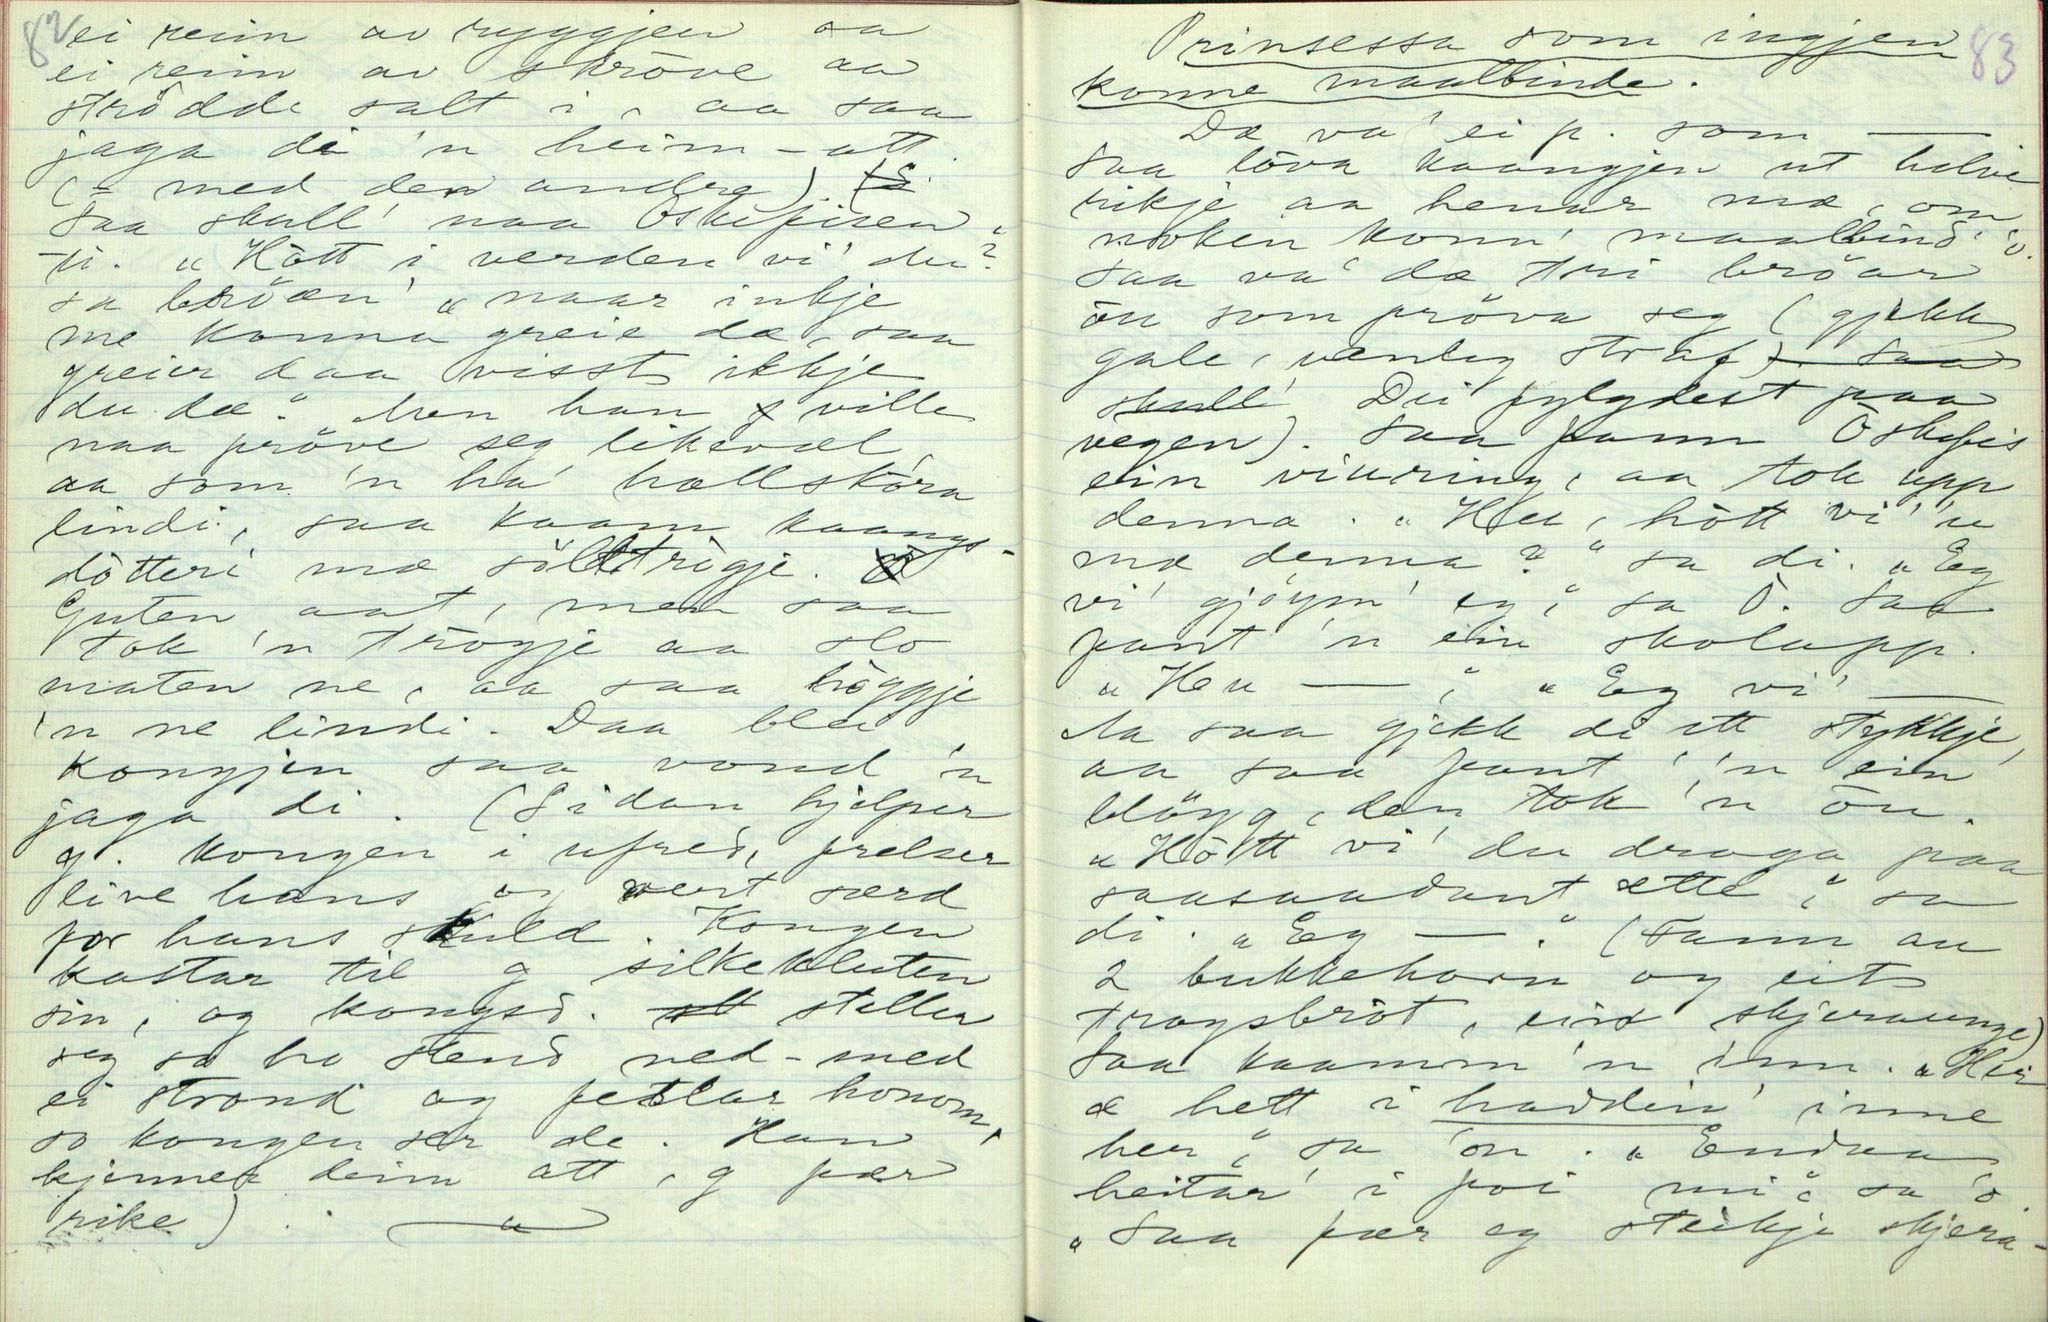 82
ei reim av ryggjen aa
ei reim av skröve aa
strödde salt i, aa saa
jaga di 'n heim-att.
(= med den andre)
Saa skull' naa Oskefisen
ti. "Hött i verden vi' du?"
sa bröen', "naar inkje
me konna greie dæ, saa
greier daa visst ikkje
du dæ." Men han ville
naa pröve seg likevæl,
aa som 'n ha' hallskóra
lindi, saa kaam kaangs-
dötteri mæ sölvtrögje.
Guten aat, men saa
tok 'n trögje aa slo
maten ne, aa saa höggje
'n ne lindi. Daa blei
kongjen saa vond 'n
jaga di. (Sidan hjelper
g. kongen i ufred, frelser
live hans og vert særd
for hans skuld. Kongen
kastar til g silkekluten
sin, og kongsd. steller
seg so ho stend ned-med
ei strond og fetlar honom,
so kongen ser de. Han
kjenner deim att, g fær
rike).
83
Prinsessa som ingjen
konne maalbinde.
Dæ va' ei p. som —
Saa löva kaangjen ut halve
rikje aa henar mæ, om
noken konn' maalbind' 'o.
Saa va' dæ tri bröar
ön som pröva seg (gjekk
gale, vanleg straf). Saa
skull' Dei fylgdest paa
vegen). Saa fann Oskefis
ein viuring, aa tok upp
denna. "Heu, hött vi' 'u
mæ denna?" sa di. "Eg
vi' gjöym' eg," sa O. Saa
fant 'n ein skolapp.
"Heu —," "Eg vi' —
Aa saa gjekk di ett stykkje,
aa saa fant' 'n ein
blöyg, den tok 'n ön.
"Hött vi' du draga paa
saasaadant ette," sa
di. "Eg —." (Fann au
2 bukkehorn og eit
trogsbrot, ein skjeraunge)
Saa kaamm 'n inn. "Her
æ hett i haddin' inne
her," sa 'n. "Endaa
heitar' i foi mi," sa 'o
"Saa fær eg steikje skjera-